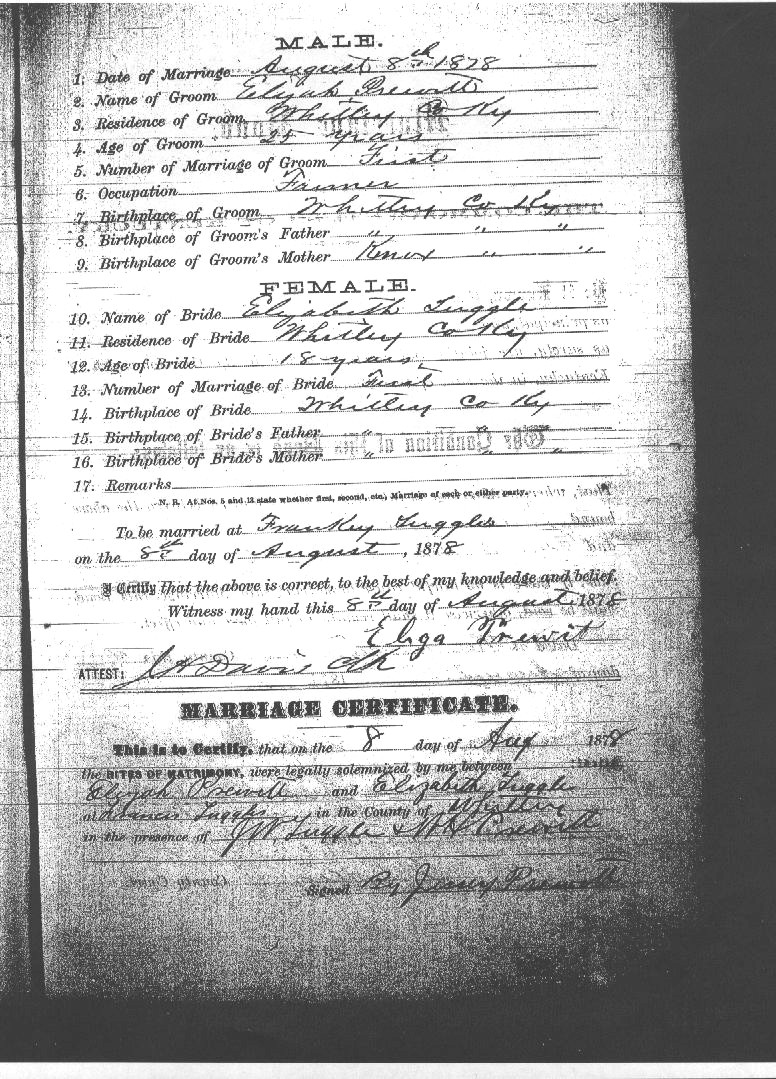 MALE.
1. Date of Marriage August 8th 1878
2. Name of Groom Elijah Prewitt
3. Residence of Groom Whitley Co Ky
4. Age of Groom 25 years
5. Number of Marriage of Groom First
6. Occupation Farmer
7. Birthplace of Groom Whitley Co Ky
8. Birthplace of Groom's Father " " "
9. Birthplace of Groom's Mother Knox " "
FEMALE.
10. Name of Bride Elizabeth Tuggle
11. Residence of Bride Whitley Co Ky
12. Age of Bride 18 years
13. Number of Marriage of Bride First
14. Birthplace of Bride Whitley Co Ky
15. Birthplace of Bride's Father " "
16. Birthplace of Bride's Mother " " "
17. Remarks
N. B. At Nos. 5 and 13 state whether first, second, etc., Marriage of each or either party.
To be married at Frankey Tuggles
on the 8th day of August, 1878
I Certify that the above is correct, to the best of my knowledge and belief.
Witness my hand this 8th day of August 1878
Eliga Prewit
ATTEST: Davis Clk
MARRIAGE CERTIFICATE.
This is to Certify, that on the 8 day of Aug 1878
the RITES OF MATRIMONY, were legally solemnized by me between
Elijah Prewitt and Elizabeth Tuggle
at Tuggles in the County of Whitley
in the presence of J W Tuggle & Prewitt
Signed By Prewitt